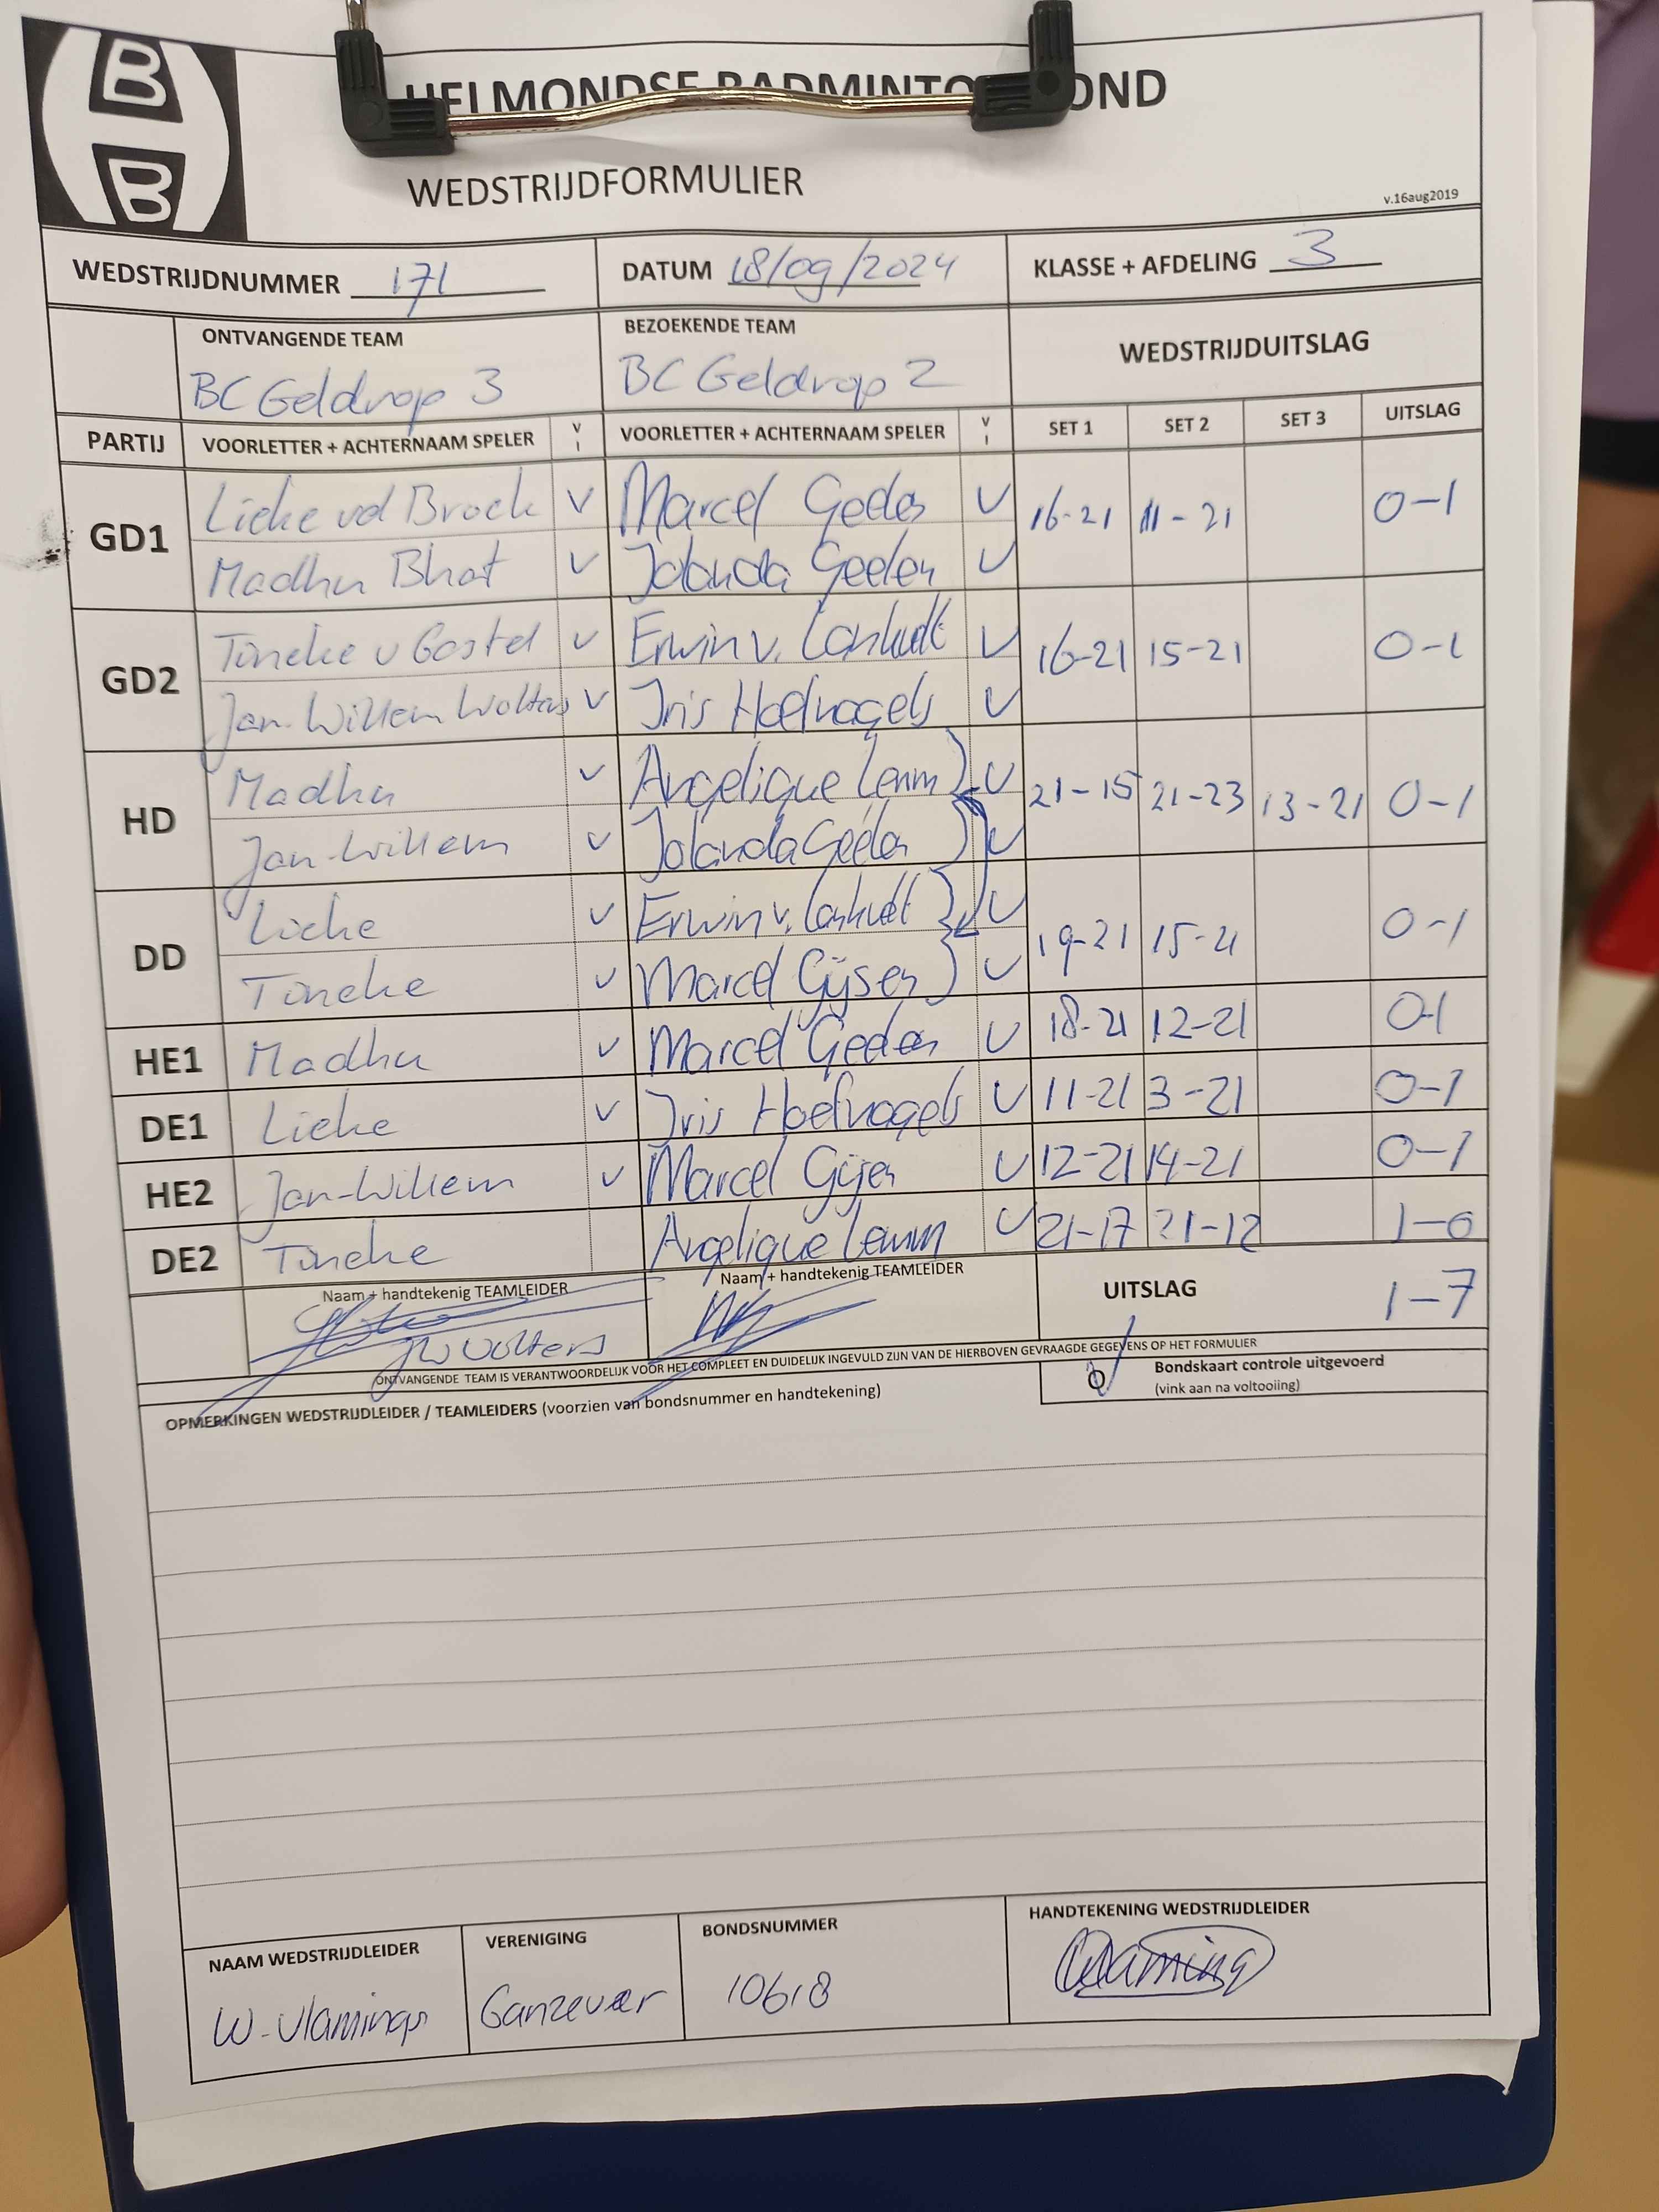 B
B
HELMONDSE BADMINTON BOND
WEDSTRIJDFORMULIER
v.16aug2019
WEDSTRIJDNUMMER 171 DATUM 18/09/2024 KLASSE + AFDELING 3
ONTVANGENDE TEAM BEZOEKENDE TEAM WEDSTRIJDUITSLAG
BC Geldrop 3 BC Geldrop 2
PARTIJ VOORLETTER + ACHTERNAAM SPELER V I VOORLETTER + ACHTERNAAM SPELER V I SET 1 SET 2 SET 3 UITSLAG
GD1 Lieke vd Broek V Marcel Geelen V 16-21 11-21 0-1
Madhu Bhat V Jolanda Geelen V
GD2 Tineke v Gastel V Erwin v. V 16-21 15-21 0-1
Jan-Willem Wolters V Iris Hoefnagels V
HD Madhu V Angelique Lemm V 21-15 21-23 13-21 0-1
Jan-Willem V Jolanda Geelen V
DD Lieke V Erwin v. V 19-21 15-21 0-1
Tineke V Marcel Gijsen V
HE1 Madhu V Marcel Geelen V 18-21 12-21 0-1
DE1 Lieke V Iris Hoefnagels V 11-21 3-21 0-1
HE2 Jan-Willem V Marcel Gijsen V 12-21 14-21 0-1
DE2 Tineke Angelique Lemm V 21-17 21-12 1-0
Naam + handtekenig TEAMLEIDER Naam + handtekenig TEAMLEIDER UITSLAG 1-7
JW Wolters
ONTVANGENDE TEAM IS VERANTWOORDELIJK VOOR HET COMPLEET EN DUIDELIJK INGEVULD ZIJN VAN DE HIERBOVEN GEVRAAGDE GEGEVENS OP HET FORMULIER
Bondskaart controle uitgevoerd
(vink aan na voltooiing)
OPMERKINGEN WEDSTRIJDLEIDER / TEAMLEIDERS (voorzien van bondsnummer en handtekening)
NAAM WEDSTRIJDLEIDER VERENIGING BONDSNUMMER HANDTEKENING WEDSTRIJDLEIDER
W. Vlamings Ganzeveer 10618